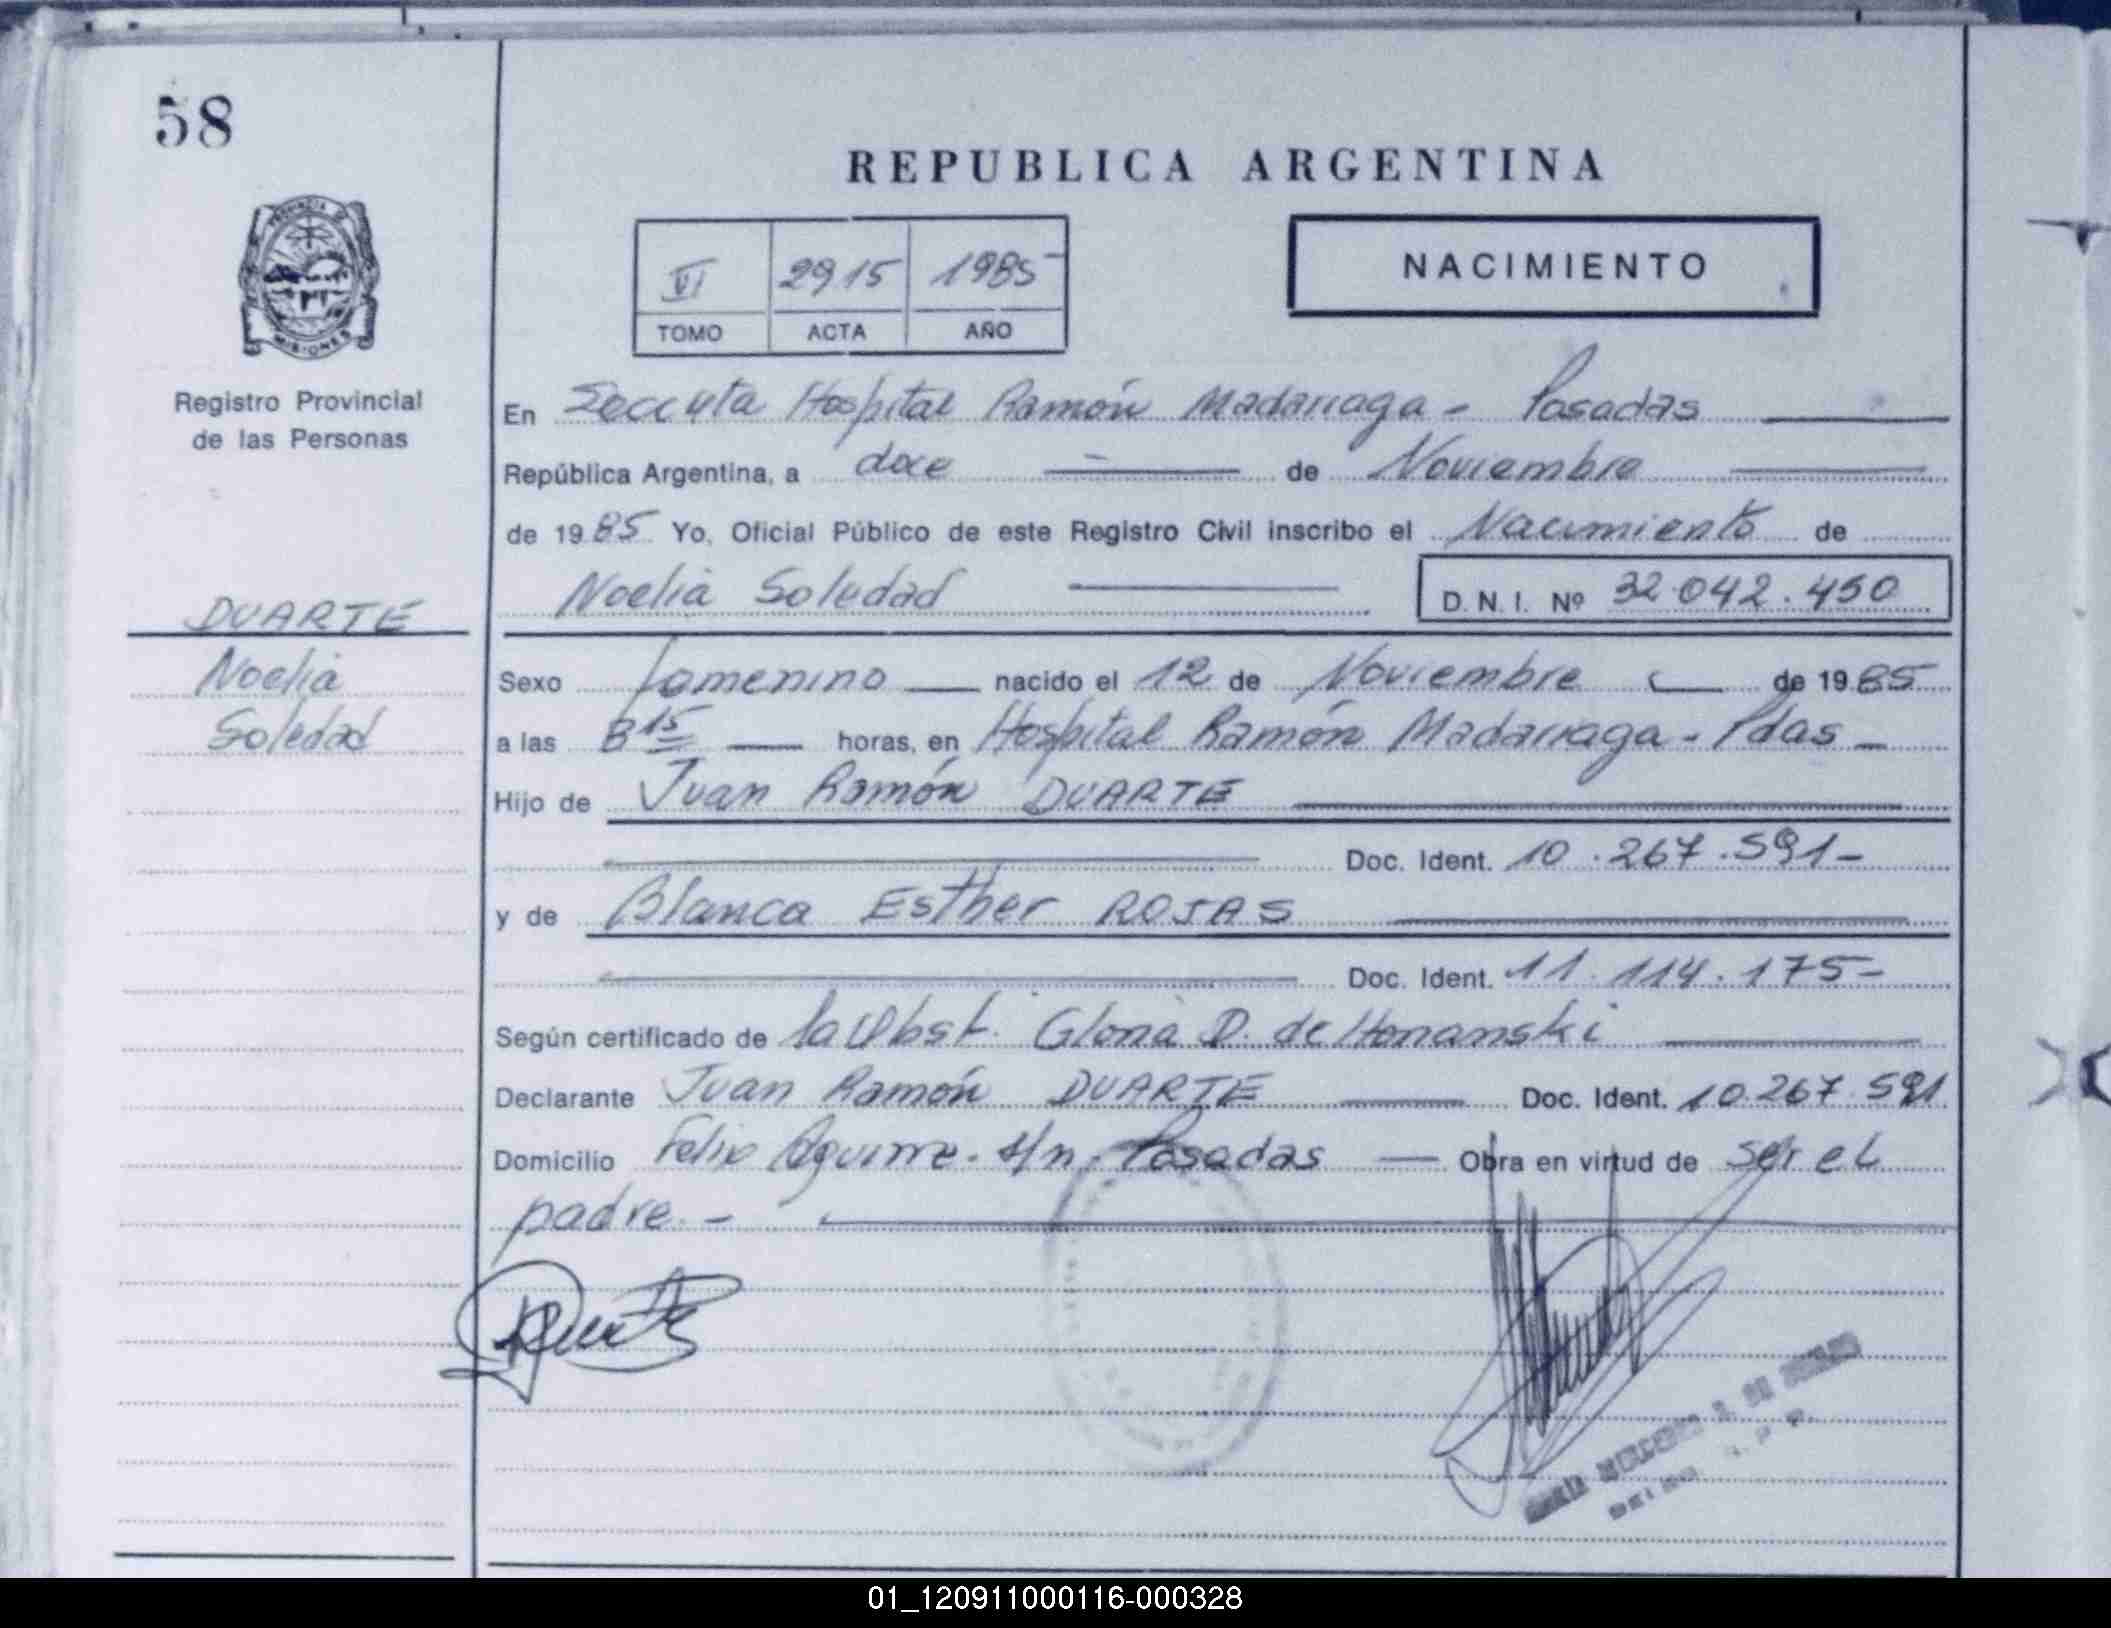 58
REPUBLICA ARGENTINA
PROVINCIA DE
MISIONES
VI 2915 1985
TOMO ACTA AÑO
NACIMIENTO
Registro Provincial
de las Personas
En Hospital Ramón Madariaga - Posadas
República Argentina, a doce de Noviembre
de 1985 Yo, Oficial Público de este Registro Civil inscribo el Nacimiento de
Noelia Soledad D.N.I. Nº 32.042.450
DUARTE
Noelia
Soledad
Sexo femenino nacido el 12 de Noviembre de 1985
a las 8 15 horas, en Hospital Ramón Madariaga - Pdas
Hijo de Juan Ramón DUARTE
Doc. Ident. 10.267.591-
y de Blanca Esther ROJAS
Doc. Ident. 11.114.175-
Según certificado de la Obst. Gloria D. de
Declarante Juan Ramón DUARTE Doc. Ident. 10.267.591
Domicilio Felix Aguirre. s/n. Posadas Obra en virtud de ser el
padre.-
01_120911000116-000328